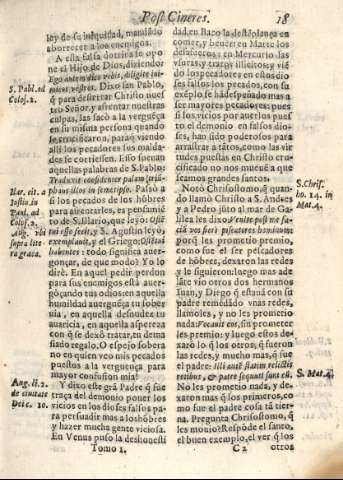 Post Cineres. 18
ley de su iniquidad, mandãdo
aborrecer a los enemigos.
A esta falsa dotrina se opo
ne el Hijo de Dios, diziendo:
Ego autem dico vobis, diligite ini-
micos vestros. Dixo san Pablo,
q̃ para desterrar Christo nuestro
Señor, y afrentar nuestras
culpas, las sacò a la verguẽça
en su misma persona quando
le crucificaron, paraq̃ viendo
alli los pecadores sus maldades
se corriessen. Esso suenan
aquellas palabras de S. Pablo:
Traduxit confidenter palam triũ-
phans illos in semetipso. Passò a
si los pecados de los hõbres
para afrentarlos, es pensamiẽ
to de S. Ilario, que leyò:
tui esse fecit, y S. Agustin leyò,
exemplauit, y el Griego:
habentes: todo significa auer-
gonçar, de que modo? Yo lo
dirè. En aquel pedir perdon
para sus enemigos està auer-
gõçando tus odios: en aquella
humildad auergueña tu sober
uia, en aquella desnudez tu
auaricia, en aquella aspereza
con q̃ se dexò tratar, tu dema
siado regalo. O espejo sobera
no en quien veo mis pecados
puestos a la verguença para
mayor confusion mia!
Y dixo este grã Padre q̃ fue
traça del demonio poner los
vicios en los dioses falsos pa-
ra persuadir mas a los hõbres
y hazer mucha gente viciosa.
En Venus puso la deshonesti
Tomo 1.
S. Pabl. ad
Coloss. 2.
Ilar. cit. a
Iustin. in
Paul. ad
Colos. 2.
Aug. vbi
supra lite
ra grata.
Aug. li. 2.
de ciuitate
Dei c. 10.
dad, en Baco la destẽplança en
comer, y beuer: en Marte los
desafueros: en Mercurio las
vsuras, y tratos illicitos, y viẽ
do los pecadores en estos dio
ses falsos los pecados, con su
exẽplo se hã despeñado mas a
ser mayores pecadores: pues
si los vicios por auerlos pues
to el demonio en falsos dio-
ses, han sido poderosos para
arrastrar a tãtos, como las vir
tudes puestas en Christo cru-
cificado no nos mueuẽ a que
seamos grandes santos?
Notò Chrisostomo, q̃ quan
do llamò Christo a S. Andres
y a Pedro jũto al mar de Gali-
lea les dixo: Venite post me fa-
ciã vos fieri piscatores hominum:
porq̃ les prometio premio,
como fue el ser pescadores
de hõbres, dexaron las redes
y le siguieron: luego mas ade
lãte vio otros dos hermanos
Iuan, y Diego q̃ estauã con su
padre remẽdãdo vnas redes,
llamoles, y no les prometio
nada: Vocauit eos, sin prometer
les premio: y luego estos de-
xarõ lo q̃ los otros, q̃ fueron
las redes, y mucho mas, q̃ fue
el padre: Illi autẽ statim relictis
retibus, & patre sequuti sunt eũ.
No les prometio nada, y de-
xaron mas q̃ los primeros, co
mo fue el padre cosa tã tier-
na. Pregunta Chrisostomo, q̃
les mouio: Respõde el santo,
el buen exemplo, el ver q̃ los
C2 otros
S. Chris.
ho. 14. in
Mat. 4.
S. Mat. 4.